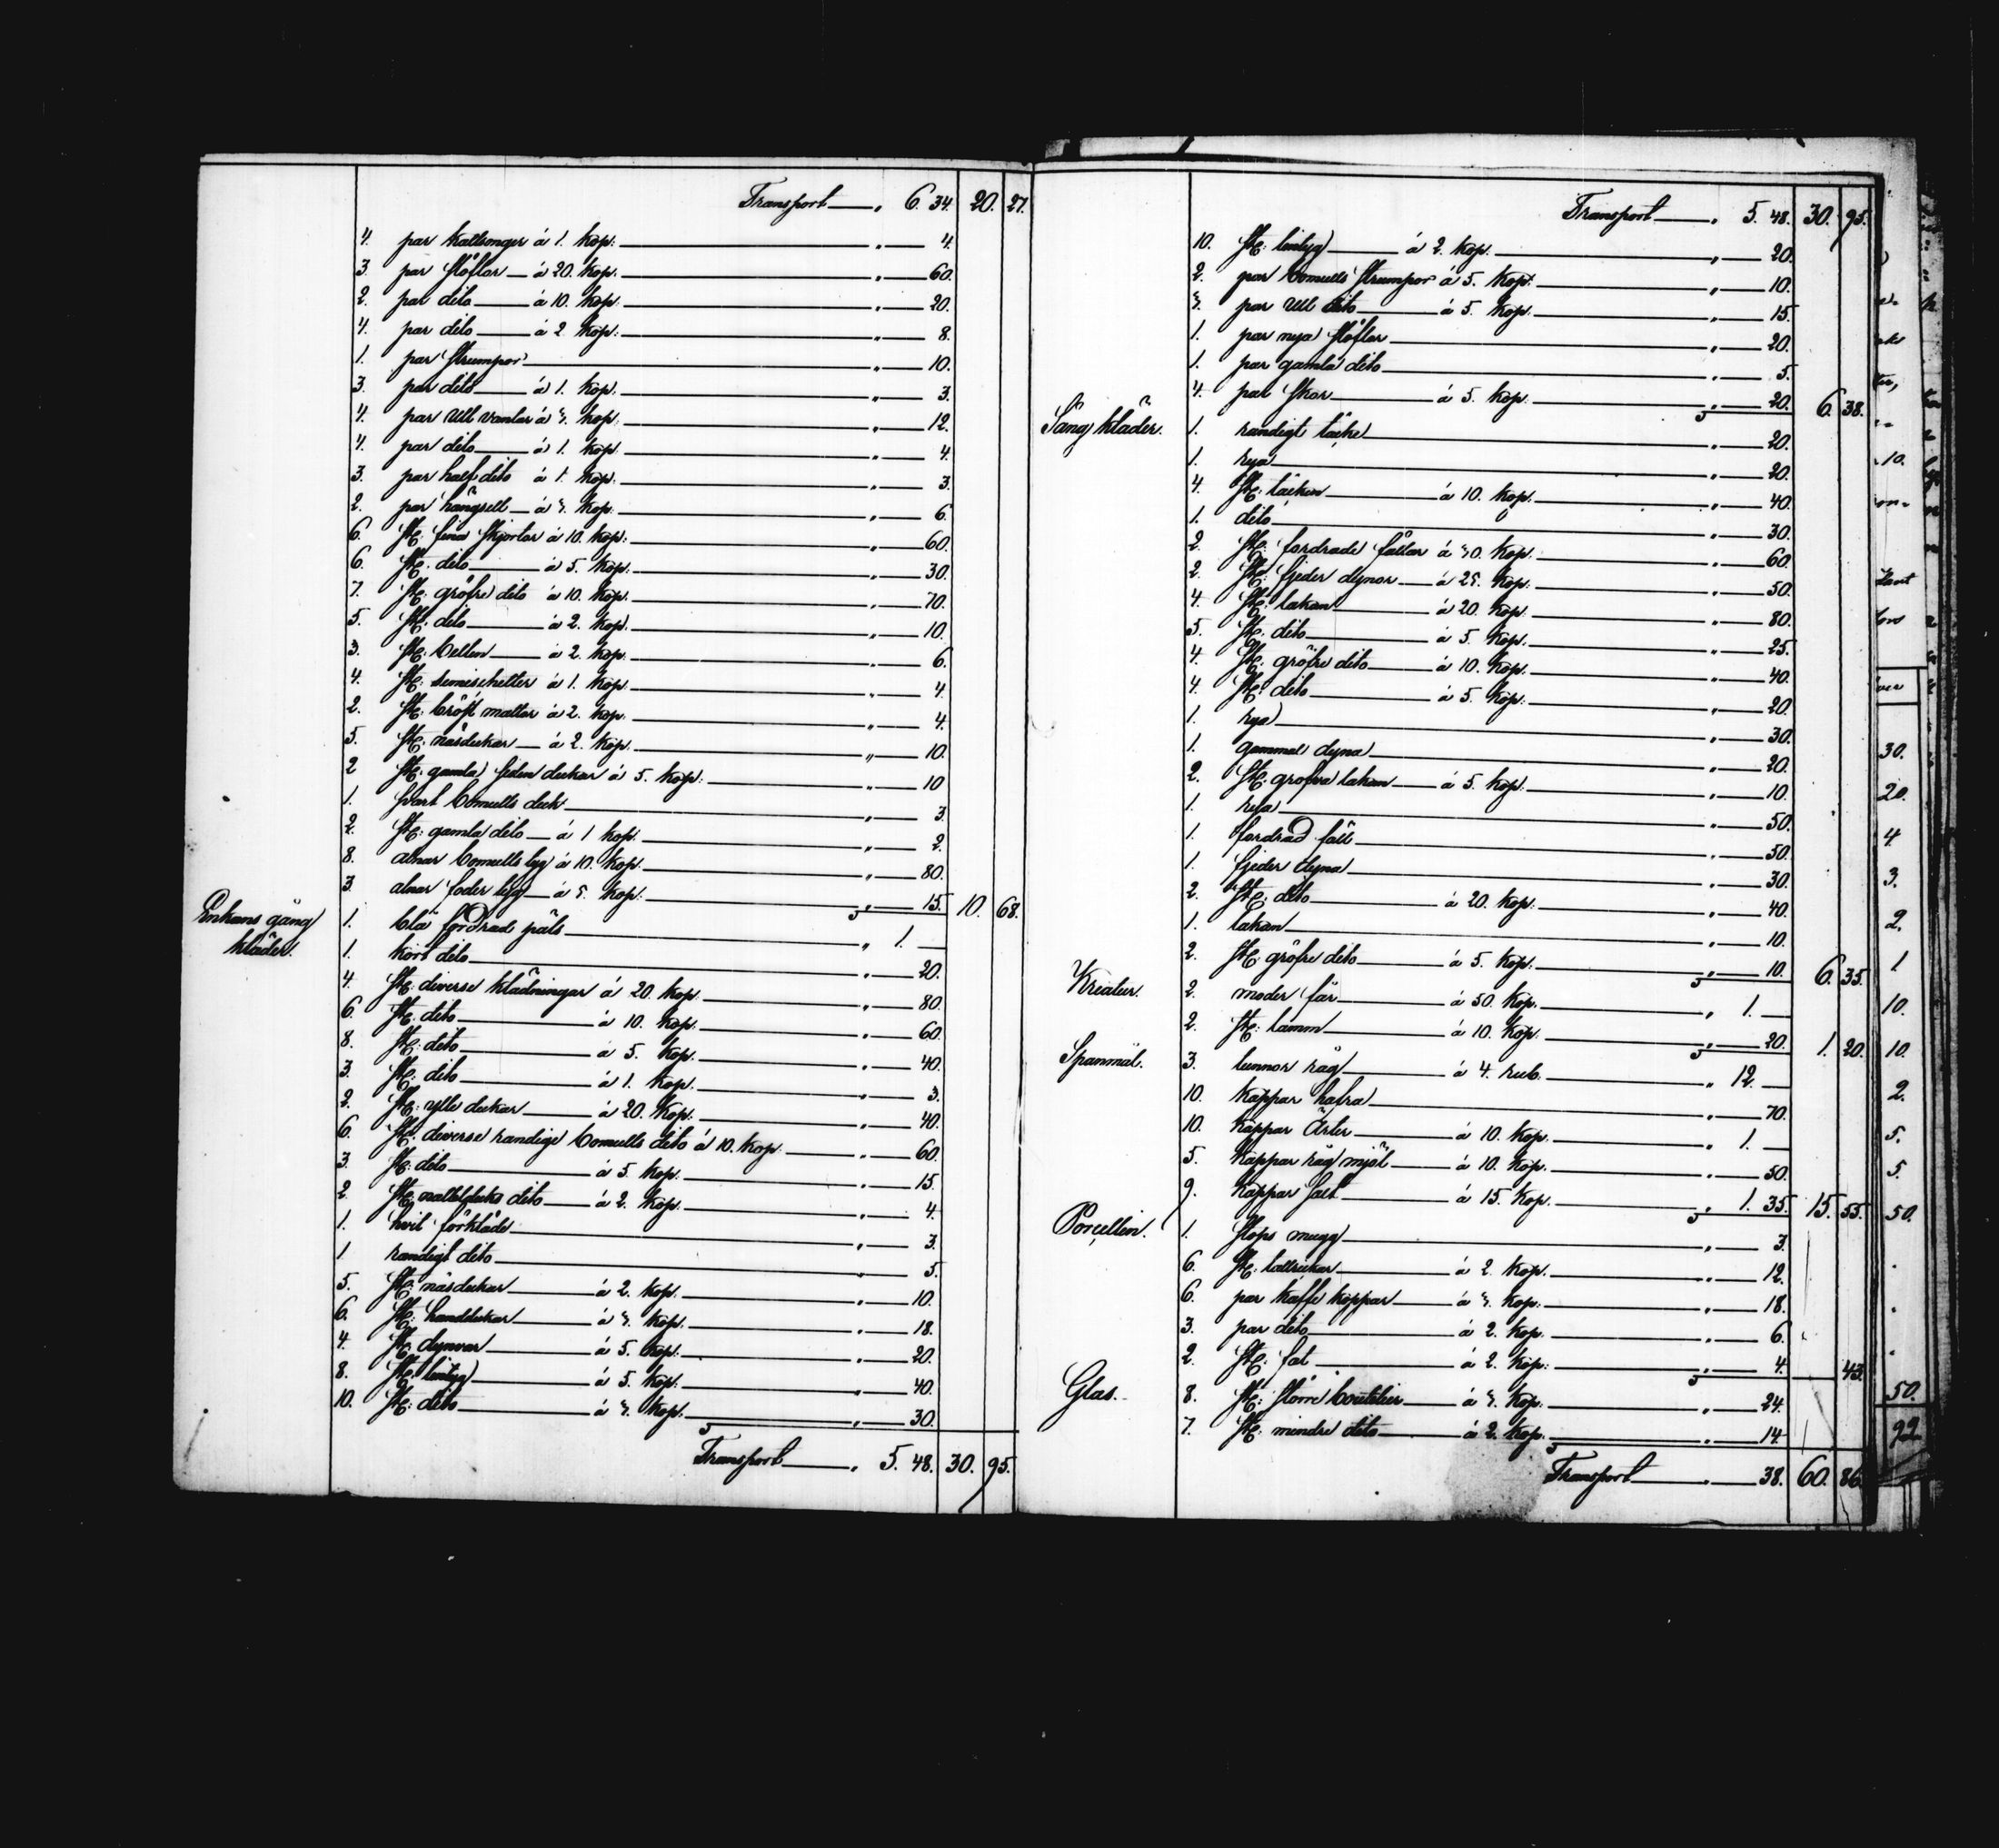 Transport " 6. 34. 20. 27.
4. par kallsonger à 1. kop: " 4.
3. par stöflar à 20. kop. " 60.
2. par dito à 10. kop: " 20.
4. par dito à 2. kop: " 8.
1. par strumpor " 10.
3. par dito à 1. kop. " 3.
4. par Ull vantar à 3. kop. " 12.
4. par dito à 1. kop. " 4.
3. par half dito à 1. kop. " 3.
2. par hängsell à 3. kop. " 6.
6. st: fina skjortor à 10. kop: " 60.
6. st: dito à 5. kop. " 30.
7. st: gröfre dito à 10. kop. " 70.
5. st: dito à 2. kop. " 10.
3. st: à 2. kop. " 6.
4. st: semischetter à 1. kop. " 4.
2. st: bröst mattor à 2. kop. " 4.
5. st: näsdukar à 2. kop. " 10.
2 st: gamla siden dukar à 5. kop: " 10
1. svart bomulls duk " 3.
2. st: gamla dito à 1 kop: " 2.
8. alnar bomulls tyg à 10. kop. " 80.
3. alnar foder tyg à 5. kop. " 15. 10. 68.
Enkans gång kläder.
1. blå fodrad päls " 1. —
1. kort dito " 20.
4. st: diverse klädningar à 20. kop. " 80.
6. st: dito à 10. kop. " 60.
8. st: dito à 5. kop. " 40.
3. st: dito à 1. kop. " 3.
2. st: ylle dukar à 20. kop. " 40.
6. st: diverse randige bomulls dito à 10. kop. " 60.
3. st: dito à 5. kop. " 15.
2. st: dito à 2. kop. " 4.
1. hvit förkläde " 3.
1 randigt dito " 5.
5. st: näsdukar à 2. kop. " 10.
6. st: handdukar à 3. kop. " 18.
4. st: dynvar à 5. kop: " 20.
8. st: lintyg à 5. kop. " 40.
10. st: dito à 3. kop. " 30.
Transport " 5. 48. 30. 95.
Transport " 5. 48. 30. 95.
10. st: lintyg à 2. kop. " 20.
2. par bomulls strumpor à 5. kop. " 10.
3. par Ull dito à 5. kop. " 15.
1. par nya stöflar " 20.
1. par gamla dito " 5.
4. par skor à 5. kop. " 20. 6. 38.
Säng kläder.
1. randigt täcke " 20.
1. rya " 20.
4. st: täcken à 10. kop. " 40.
1. dito " 30.
2. st: fordrade fällar à 30. kop. " 60.
2. st: fjeder dynor à 25. kop. " 50.
4. st: lakan à 20. kop. " 80.
5. st: dito à 5. kop. " 25.
4. st: gröfre dito à 10. kop. " 40.
4. st: dito à 5. kop. " 20.
1. rya " 30.
1. gammal dyna " 20.
2. st: grofva lakan à 5. kop. " 10.
1. rya " 50.
1. fordrad fäll " 50.
1. fjeder dyna " 30.
2. st: dito à 20. kop. " 40.
1. lakan " 10.
2. st: gröfre dito à 5. kop. " 10. 6. 35.
Kreatur. 2. moder får à 50. kop. " 1. —
2. st: lamm à 10. kop. " 20. 1. 20.
Spanmål. 3. tunnor råg à 4. rub. " 12. —
10. kappar hafra " 70.
10. kappar Ärter à 10. kop. " 1. —
5. kappar råg mjöl à 10. kop. " 50.
9. kappar salt à 15. kop. " 1. 35. 15. 55.
Porcellin. 1. stops mugg " 3.
6. st: tallrickar à 2. kop. " 12.
6. par kaffe koppar à 3. kop. " 18.
3. par dito à 2. kop. " 6.
2. st: fat à 2. kop: " 4. 43.
Glas. 8. st: större boutelier à 3. kop. " 24.
7. st: mindre dito à 2. kop. " 14.
Transport " 38. 60. 86.
10.
30.
20.
4
3.
2.
1
10.
10.
2.
5.
5.
50.
50.
92